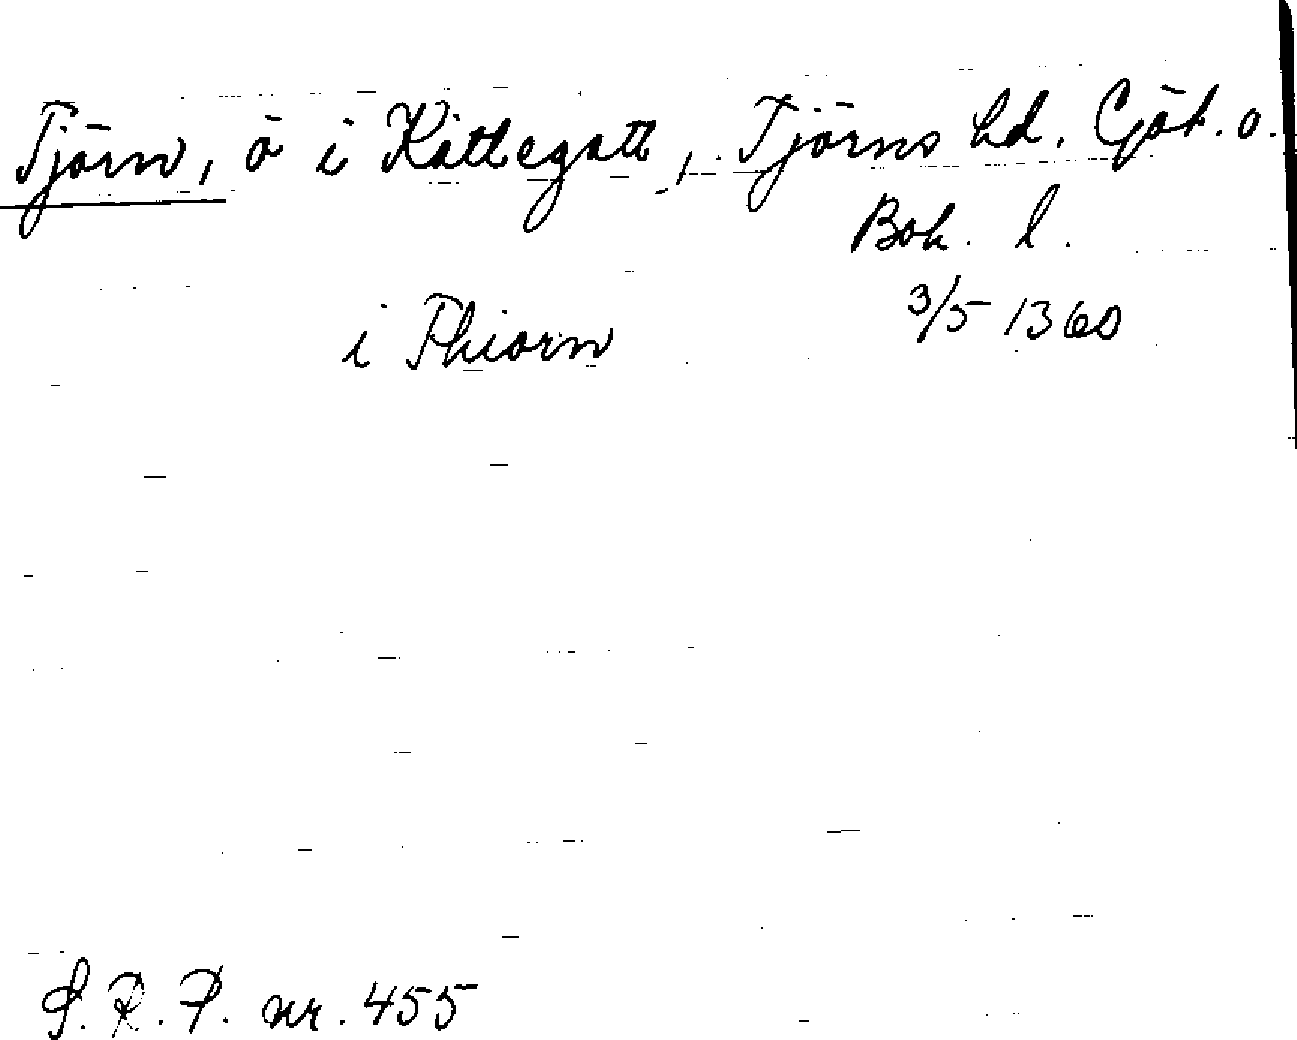 Tjörn, ö i Kattegatt, Tjörns hd. Göt. o.
Boh. l.
i Thiorn 3/5 1360
S. R. P. nr. 455